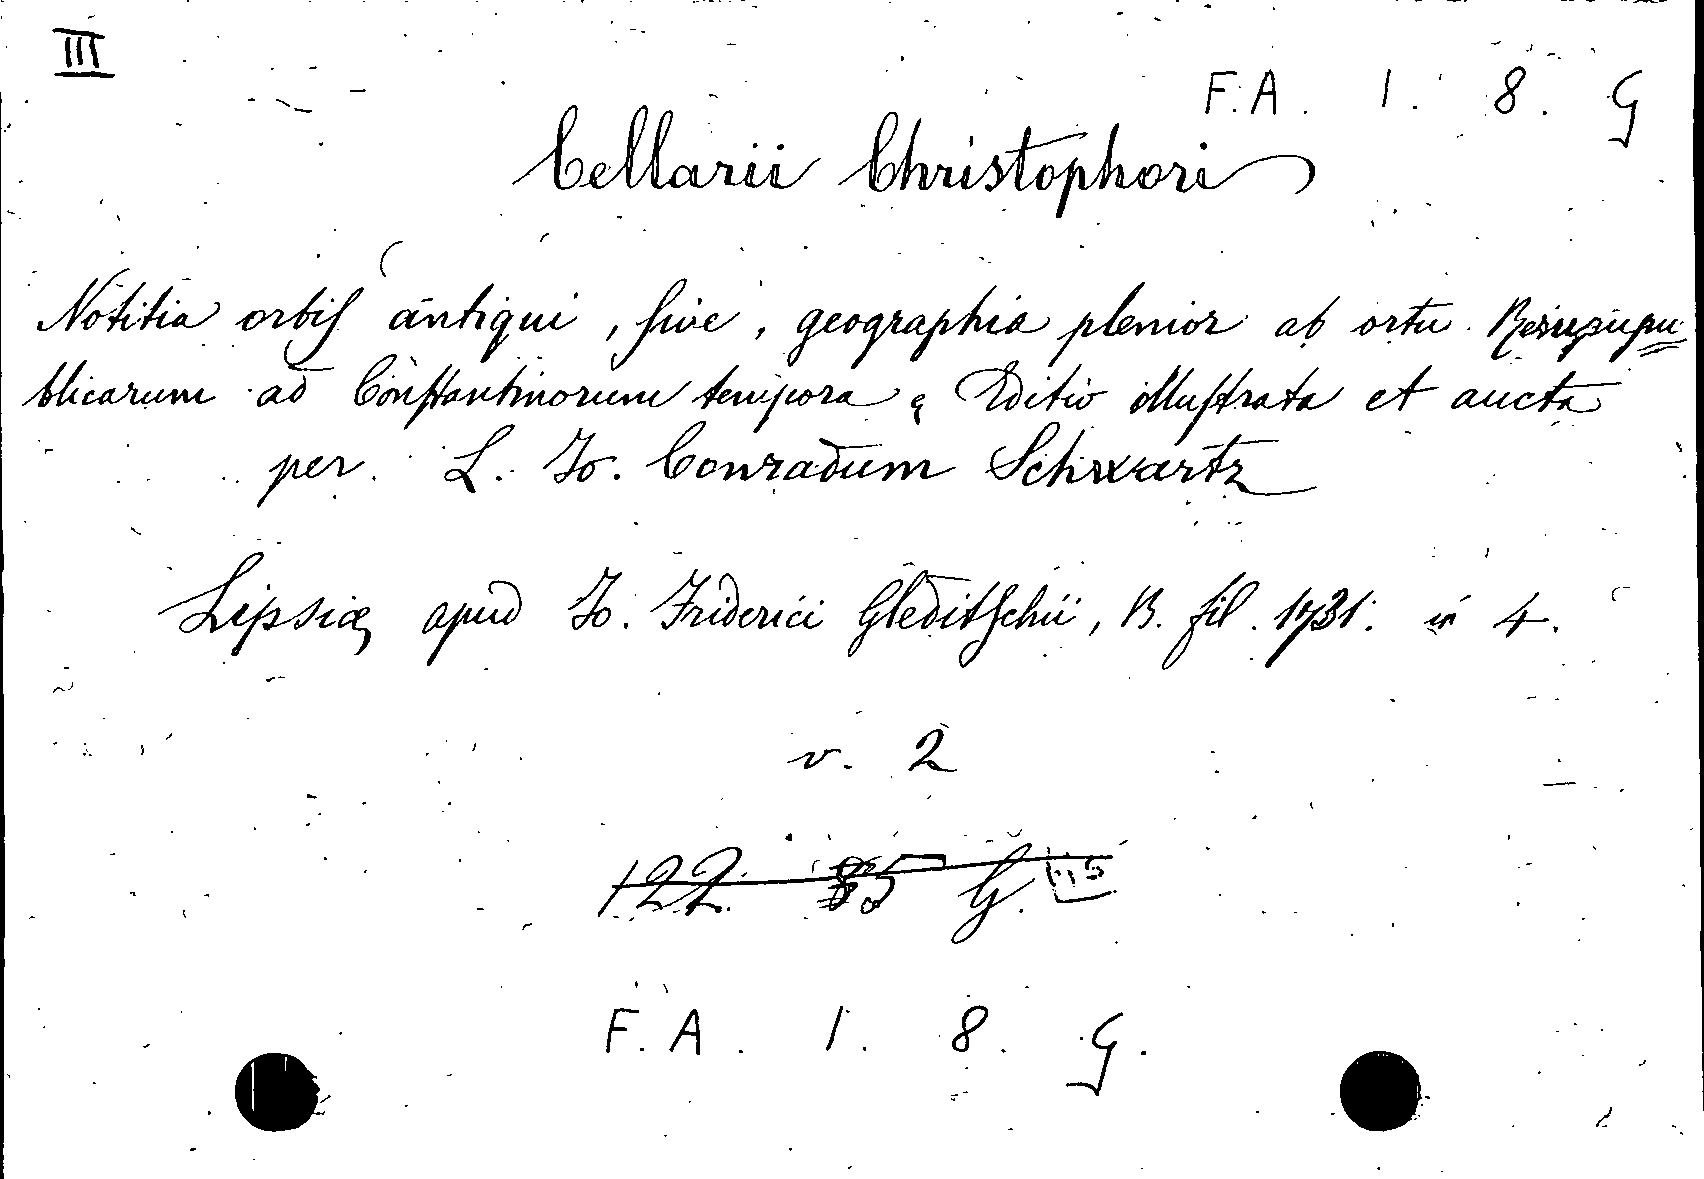 III
F. A. 1. 8. G
Cellarii Christophori
Notitia orbis antiqui, sive, geographia plenior ab ortu Rerumpu
blicarum ad Constantinorum tempora. Editio illustrata et aucta
per L. Jo. Conradum Schwartz
Lipsiæ, apud Jo. Friderici Gleditschii, B. fil. 1731. in 4.
v. 2
122 85 G.
F. A. 1. 8. G.